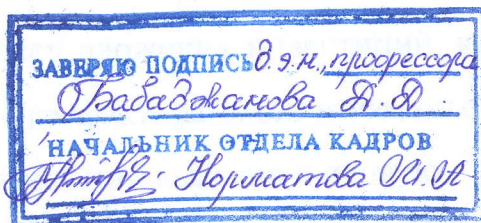 ЗАВЕРЯЮ ПОДПИСЬ д.э.н., профессора
Бабаджанова Д.Д.
НАЧАЛЬНИК ОТДЕЛА КАДРОВ
Норматова М.А